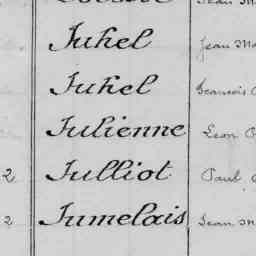 Juhel Jean Ma
Juhel Francois
Julienne Leon
2 Julliot Paul
2 Jumelais Jean M